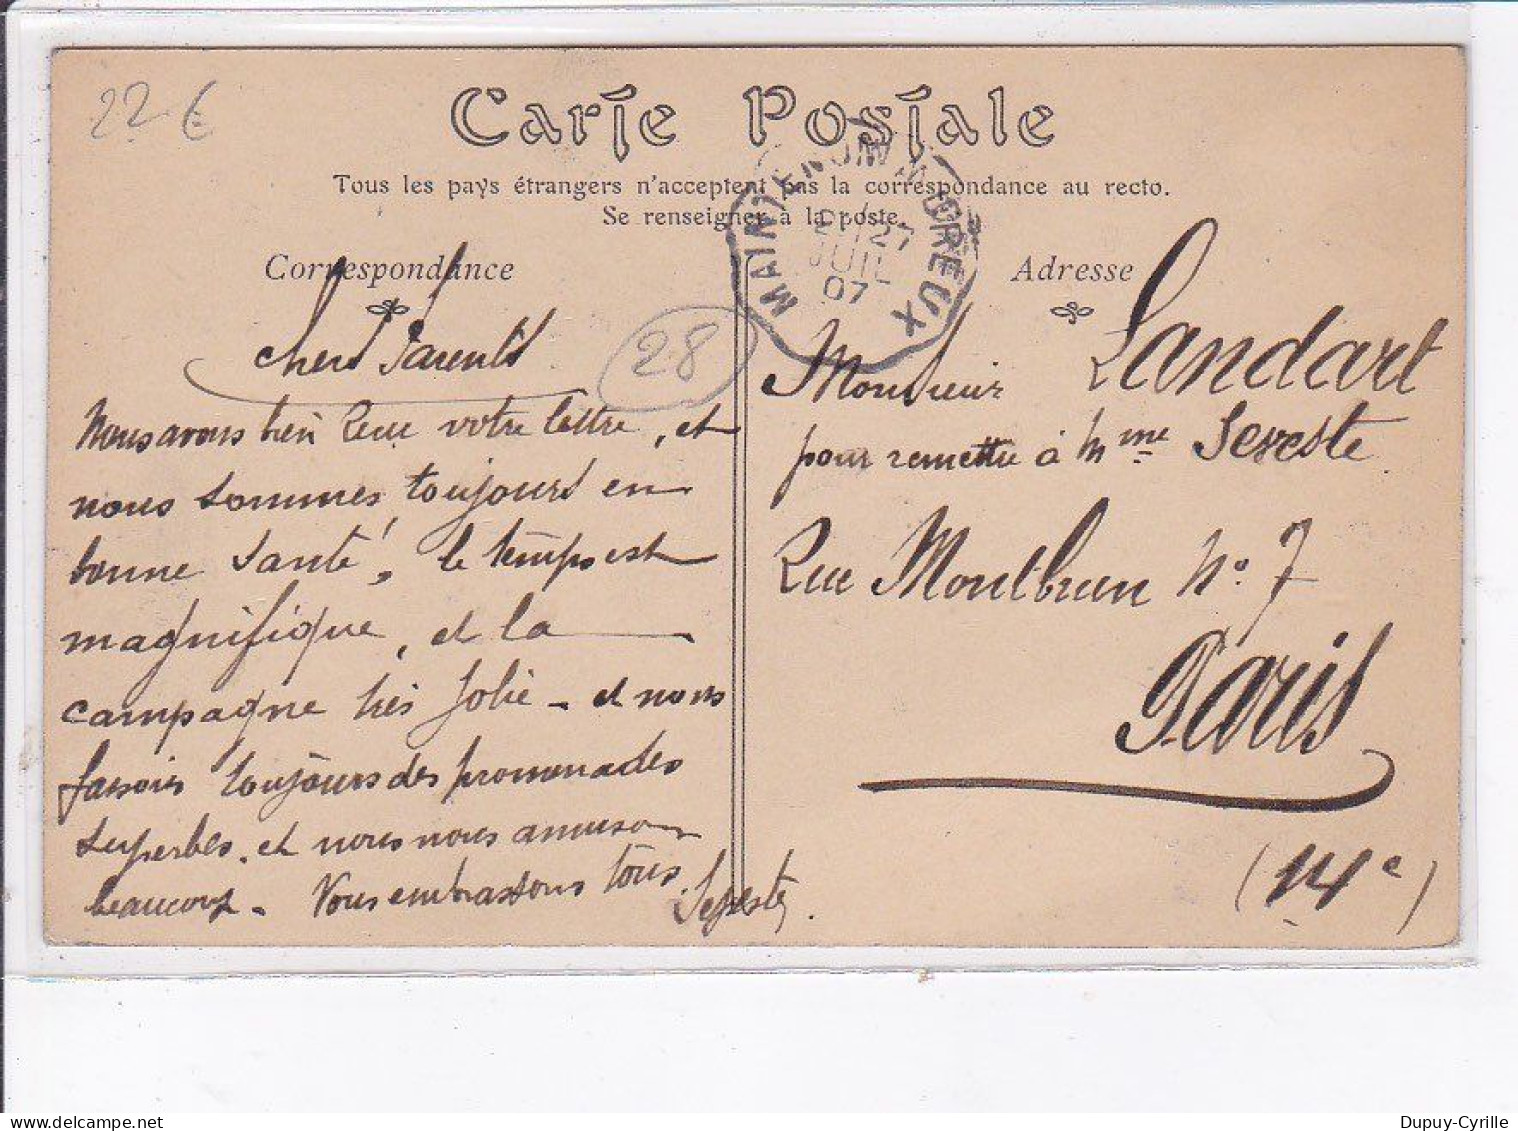 22 €
Carte Postale
Tous les pays étrangers n'acceptent pas la correspondance au recto.
Se renseigner à la poste.
Correspondance
Adresse
MAINTENON A DREUX
27
JUIL
07
28
Chers Parents
Nous avons bien reçu votre lettre, et
nous sommes toujours en
bonne santé, le temps est
magnifique, et la
campagne très jolie - et nous
faisons toujours des promenades
superbes. et nous nous amusons
beaucoup. Vous embrassons tous.
Sereste.
Monsieur Landart
pour remettre à Mme Sereste.
Rue Montbrun No. 7
Paris
(14e)
Dupuy-Cyrille